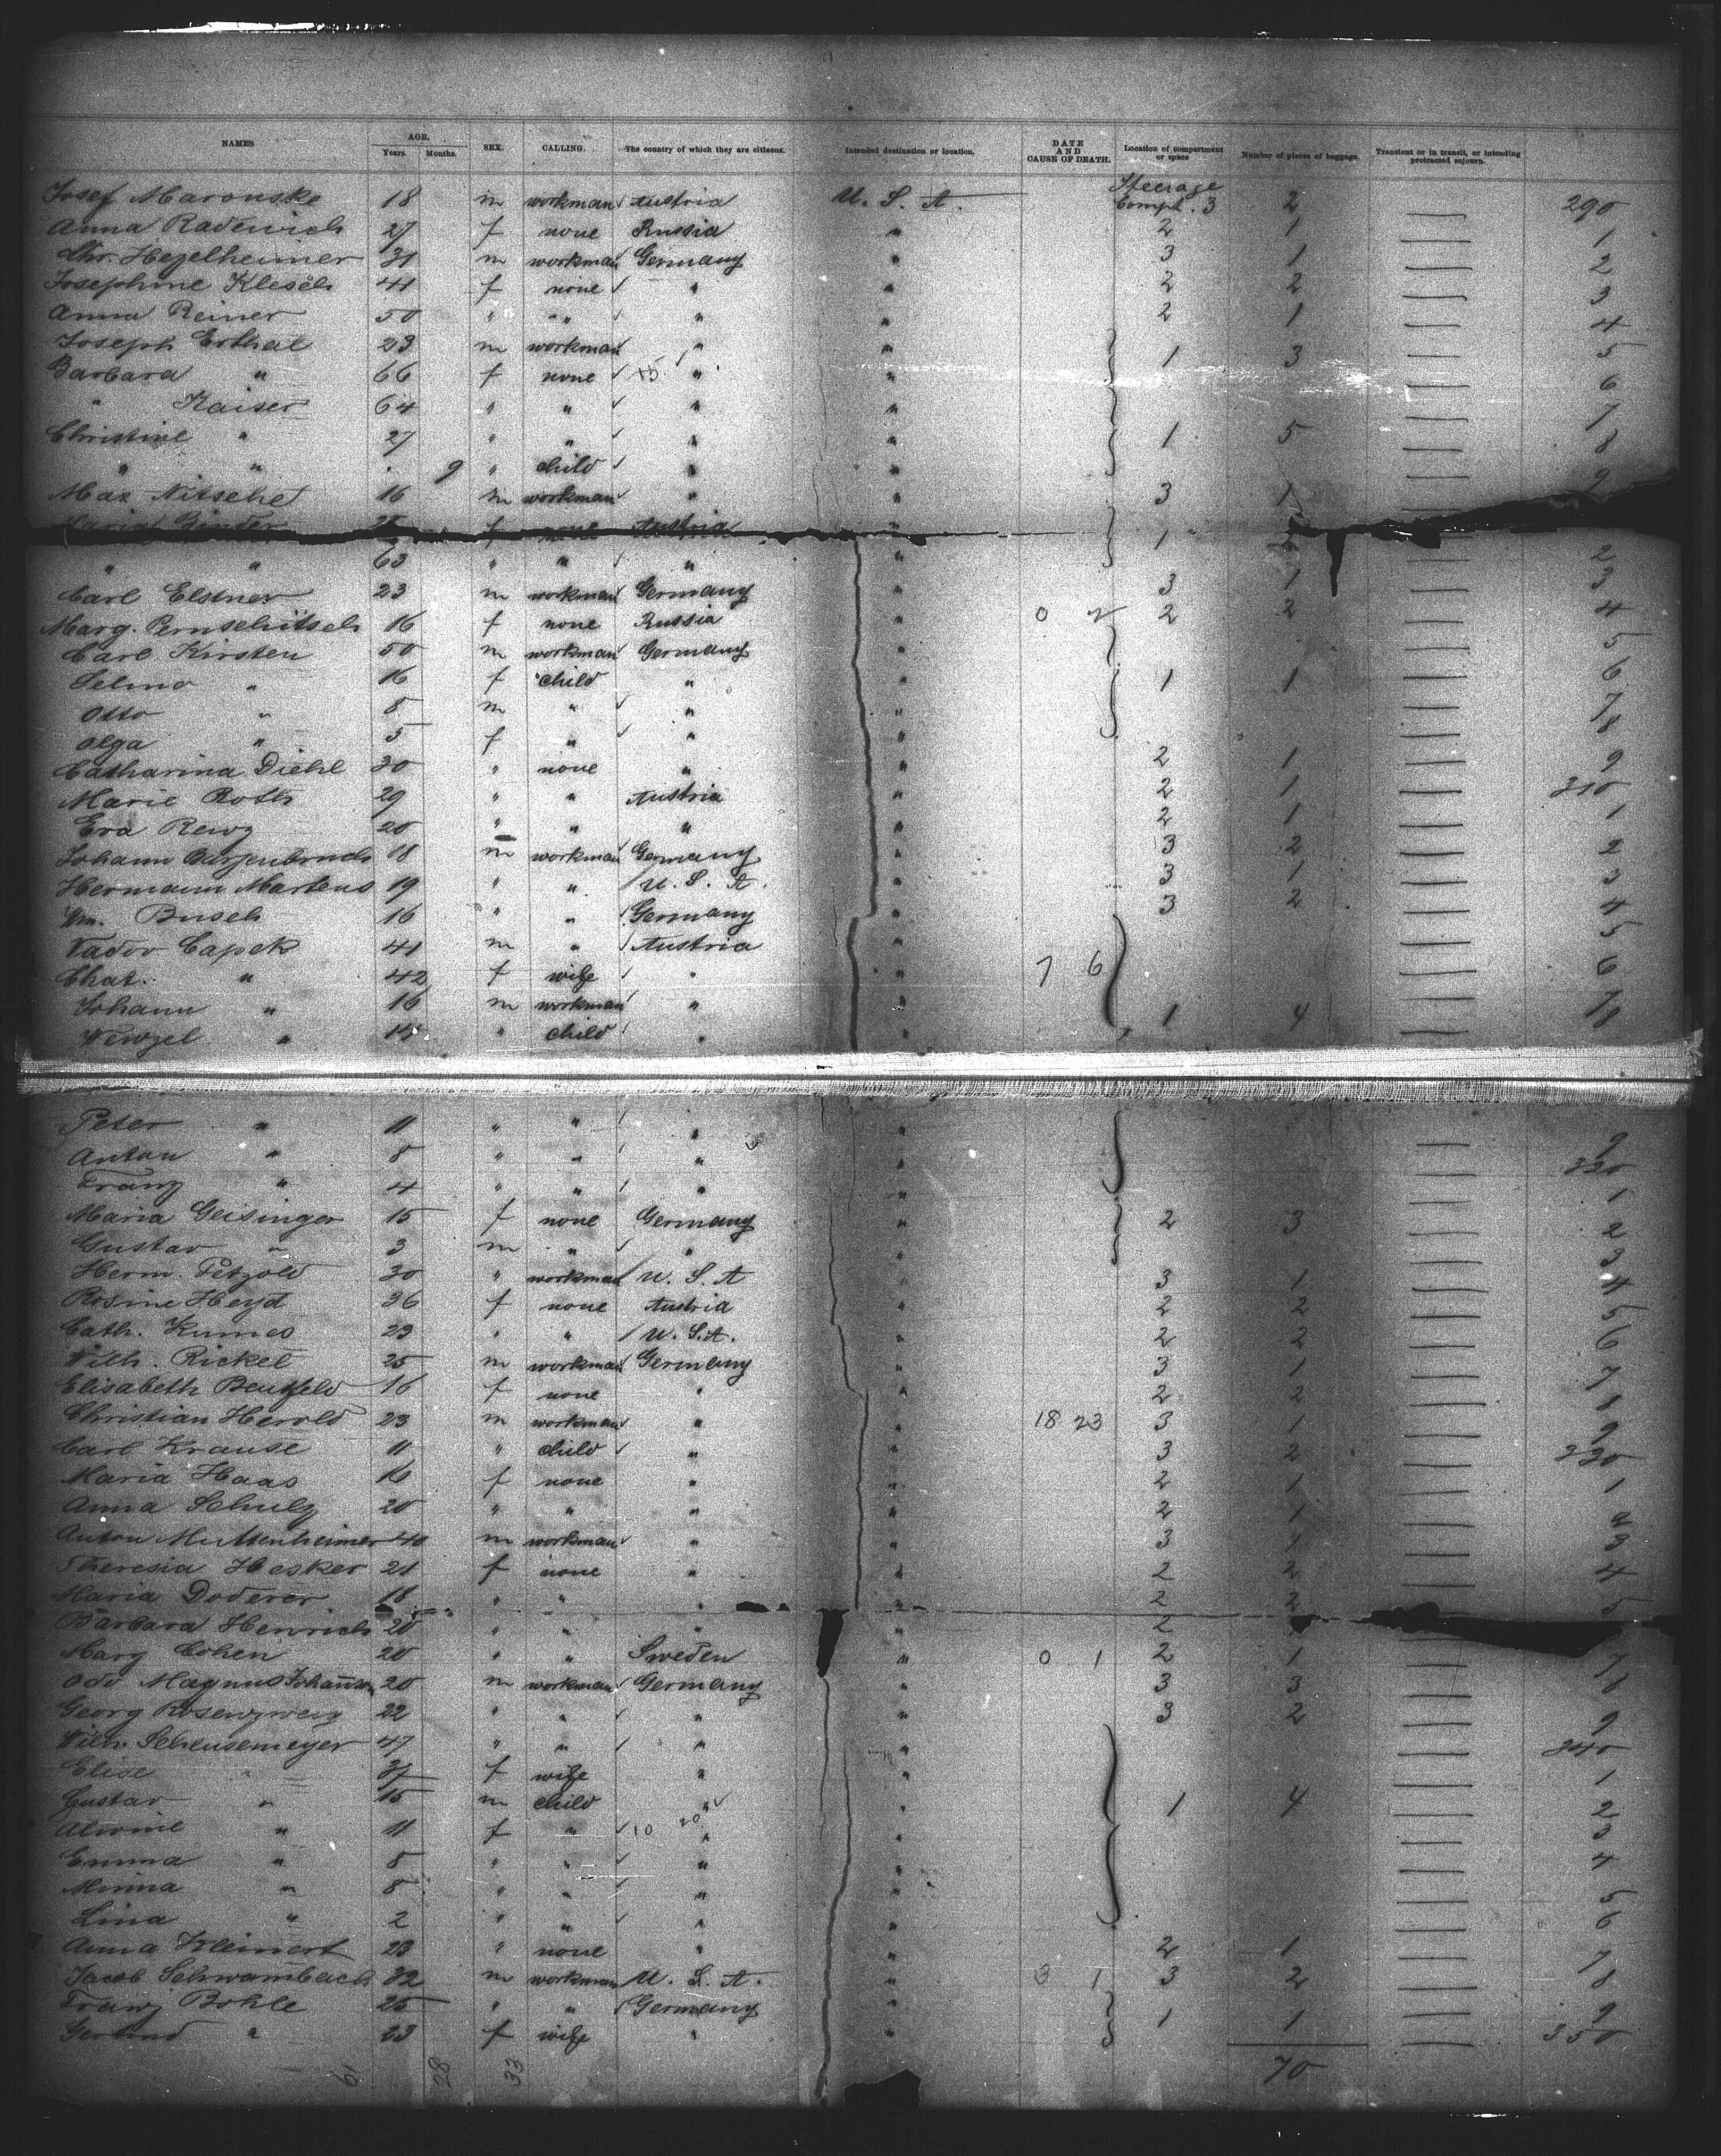 NAMES AGE. Years. Months. SEX. CALLING. The country of which they are citizens. Intended destination or location. DATE AND CAUSE OF DEATH. Location of compartment or space Number of pieces of baggage. Transient or in transit, or intending protracted sojourn.
Josef Maronske 18 m workman Austria U. S. A. Steerage Compt. 3 2 — 290
Anna Radewich 27 f none Russia " 2 1 — 1
Chr. Hezelheimer 31 m workman Germany " 3 1 — 2
Josephine Klesch 41 f none " " 2 2 — 3
Anna Reiner 50 " " " " 2 1 — 4
Joseph Erthal 23 m workman " " 1 3 — 5
Barbara " 66 f none " " — 6
" Kaiser 64 " " " " — 7
Christine " 27 " " " " 1 5 — 8
" " 9 " child " " — 9
Max Nitsche 16 m workman " " 3 1
Maria Binder f none Austria 1
" " 63 " " " " — 2
Carl Elstner 23 m workman Germany " 3 1 — 3
Marg. Pernschitsch 16 f none Russia " 0 2 2 2 — 4
Carl Kirsten 50 m workman Germany " — 5
Selma " 16 f child " " 1 1 — 6
Otto " 8 m " " " — 7
Olga " 5 f " " " — 8
Catharina Diehl 30 " none " " 2 1 — 9
Marie Roth 29 " " Austria " 2 1 — 310
Eva Rewz 20 " " " " 2 1 — 1
Johann Barzenbruch 18 m workman Germany " 3 2 — 2
Hermann Martens 19 " " U. S. A. " 3 1 — 3
Wm. Busch 16 " " Germany " 3 2 — 4
Vadov Capek 41 m " Austria " — 5
Chat. " 42 f wife " " 7 6 — 6
Johann " 16 m workman " " — 7
Wenzel " 14 " child " " 1 4 — 8
Peter " 11 " " " " — 9
Anton " 8 " " " " — 320
Franz " 4 " " " " — 1
Maria Geisinger 15 f none Germany " 2 3 — 2
Gustav " 3 m " " " — 3
Herm. Petzold 30 " workman U. S. A " 3 1 — 4
Rosine Heyd 36 f none Austria " 2 2 — 5
Cath. Kumes 23 " " U. S. A. " 2 2 — 6
Wilh. Rickel 25 m workman Germany " 3 1 — 7
Elisabeth Beutfeld 16 f none " " 2 2 — 8
Christian Herold 23 m workman " " 18 23 3 1 — 9
Carl Krause 11 " child " " 3 2 — 330
Maria Haas 16 f none " " 2 1 — 1
Anna Schulz 20 " " " " 2 1 — 2
Anton Muttenheimer 40 m workman " " 3 1 — 3
Theresia Hesker 21 f none " " 2 2 — 4
Maria Doderer 18 " " " " 2 2 — 5
Barbara Henrich 20 " " " " 2
Marg Cohen 20 " " Sweden " 0 1 2 1 — 7
Odd Magnus Johannson 20 m workman Germany " 3 3 — 8
Georg Rosenzweig 22 " " " " 3 2 — 9
Wilh. Scheusemeyer 47 " " " " — 340
Elise " 37 f wife " " — 1
Gustav " 15 m child " " 1 4 — 2
Alwine " 11 f " 10 20 " " — 3
Emma " 8 " " " " — 4
Minna " 8 " " " " — 5
Lina " 2 " " " " — 6
Anna Kleinert 23 " none " " 2 1 — 7
Jacob Schwambach 32 m workman U. S. A. " 3 1 3 2 — 8
Franz Bohle 25 " " Germany " 1 1 — 9
Gertrud " 23 f wife " " — 350
61 28 33 70